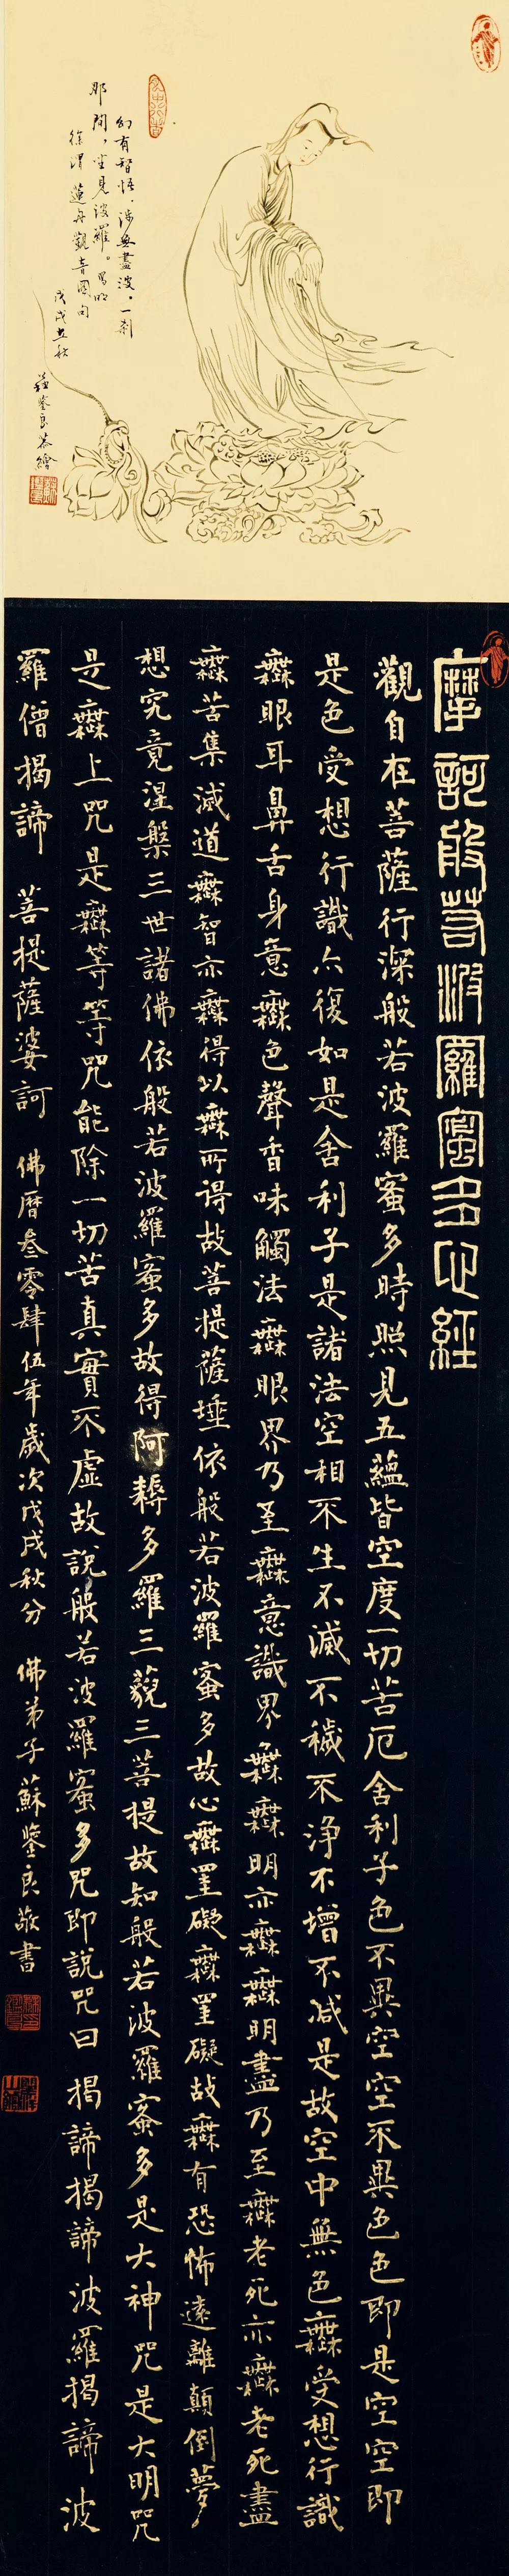 幻有智悟，涉無盡波。一剎
那間，坐見波羅。寫明
徐渭蓮舟觀音圖句
戊戌立秋
蘇鑒良恭繪
摩訶般若波羅蜜多心經
觀自在菩薩行深般若波羅蜜多時照見五蘊皆空度一切苦厄舍利子色不異空空不異色色即是空空即
是色受想行識亦復如是舍利子是諸法空相不生不滅不穢不淨不增不減是故空中無色無受想行識
無眼耳鼻舌身意無色聲香味觸法無眼界乃至無意識界無無明亦無無明盡乃至無老死亦無老死盡
無苦集滅道無智亦無得以無所得故菩提薩埵依般若波羅蜜多故心無罣礙無罣礙故無有恐怖遠離顛倒夢
想究竟涅槃三世諸佛依般若波羅蜜多故得阿耨多羅三藐三菩提故知般若波羅蜜多是大神咒是大明咒
是無上咒是無等等咒能除一切苦真實不虛故說般若波羅蜜多咒即說咒曰 揭諦揭諦 波羅揭諦 波
羅僧揭諦 菩提薩婆訶 佛曆叁零肆伍年歲次戊戌秋分 佛弟子蘇鑒良敬書